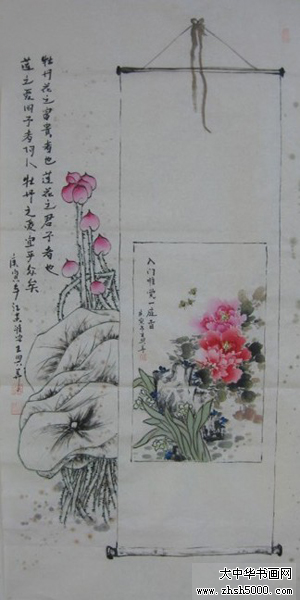 牡丹花之富贵者也 莲花之君子者也
莲之爱同予者何人 牡丹之爱宜乎众矣
庚寅年
入门惟觉一庭香
大中华书画网
www.zhsh5000.com